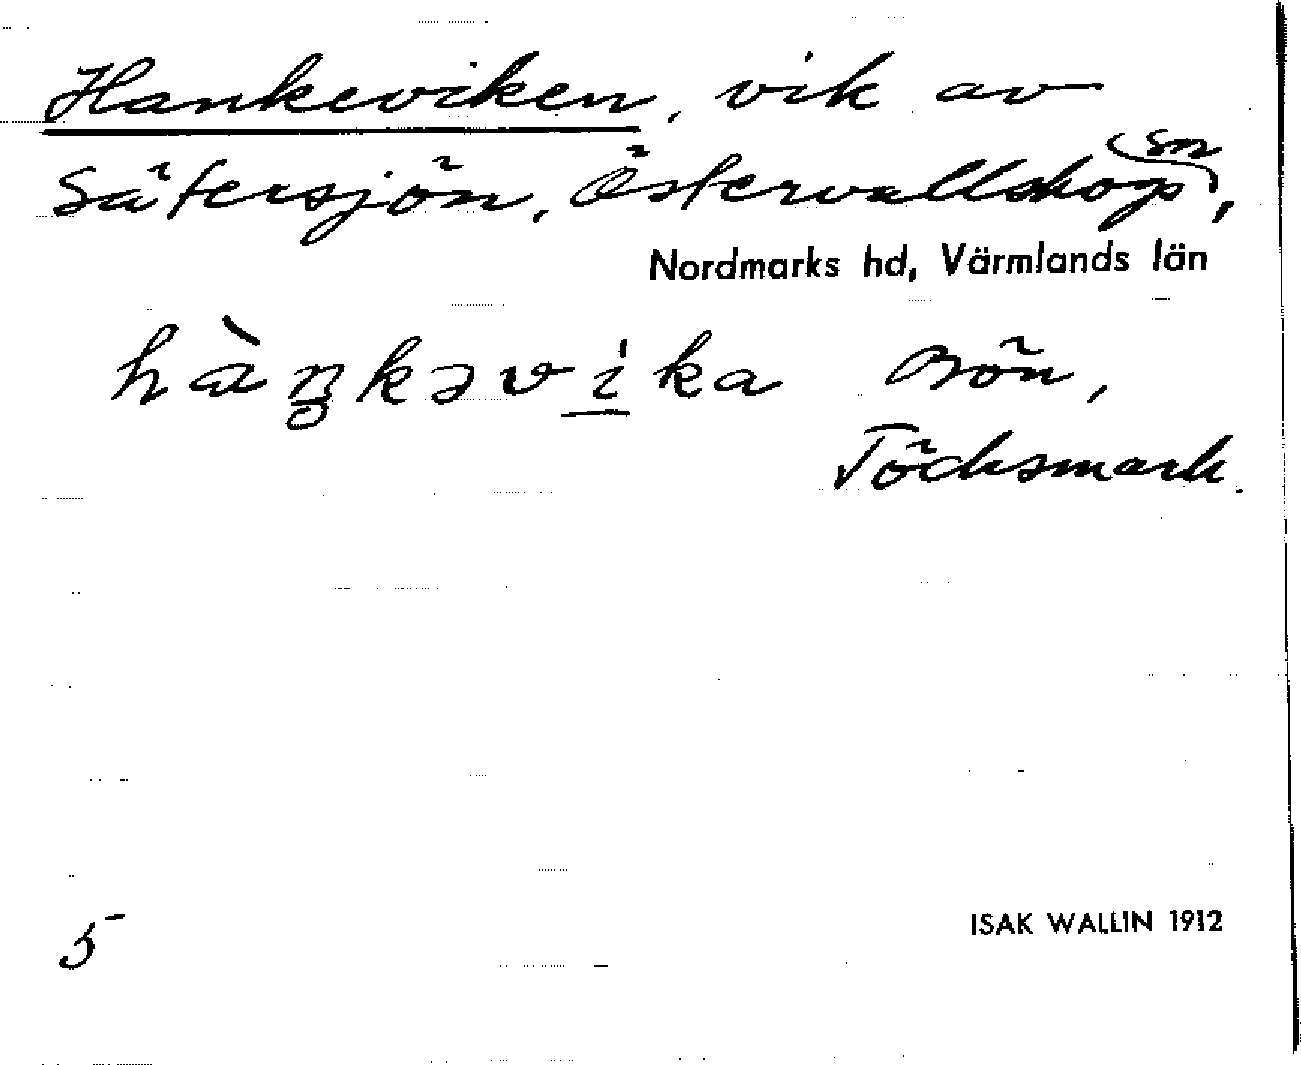 Hankeviken, vik av
Sätersjön, Östervallskogs sn,
Nordmarks hd, Värmlands län
hàŋkəvika Bön,
Töcksmark.
5
ISAK WALLIN 1912